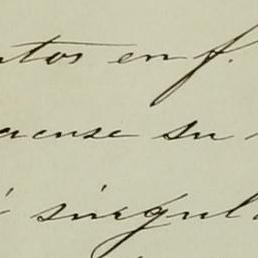 ntos en f.
acuse su
singul